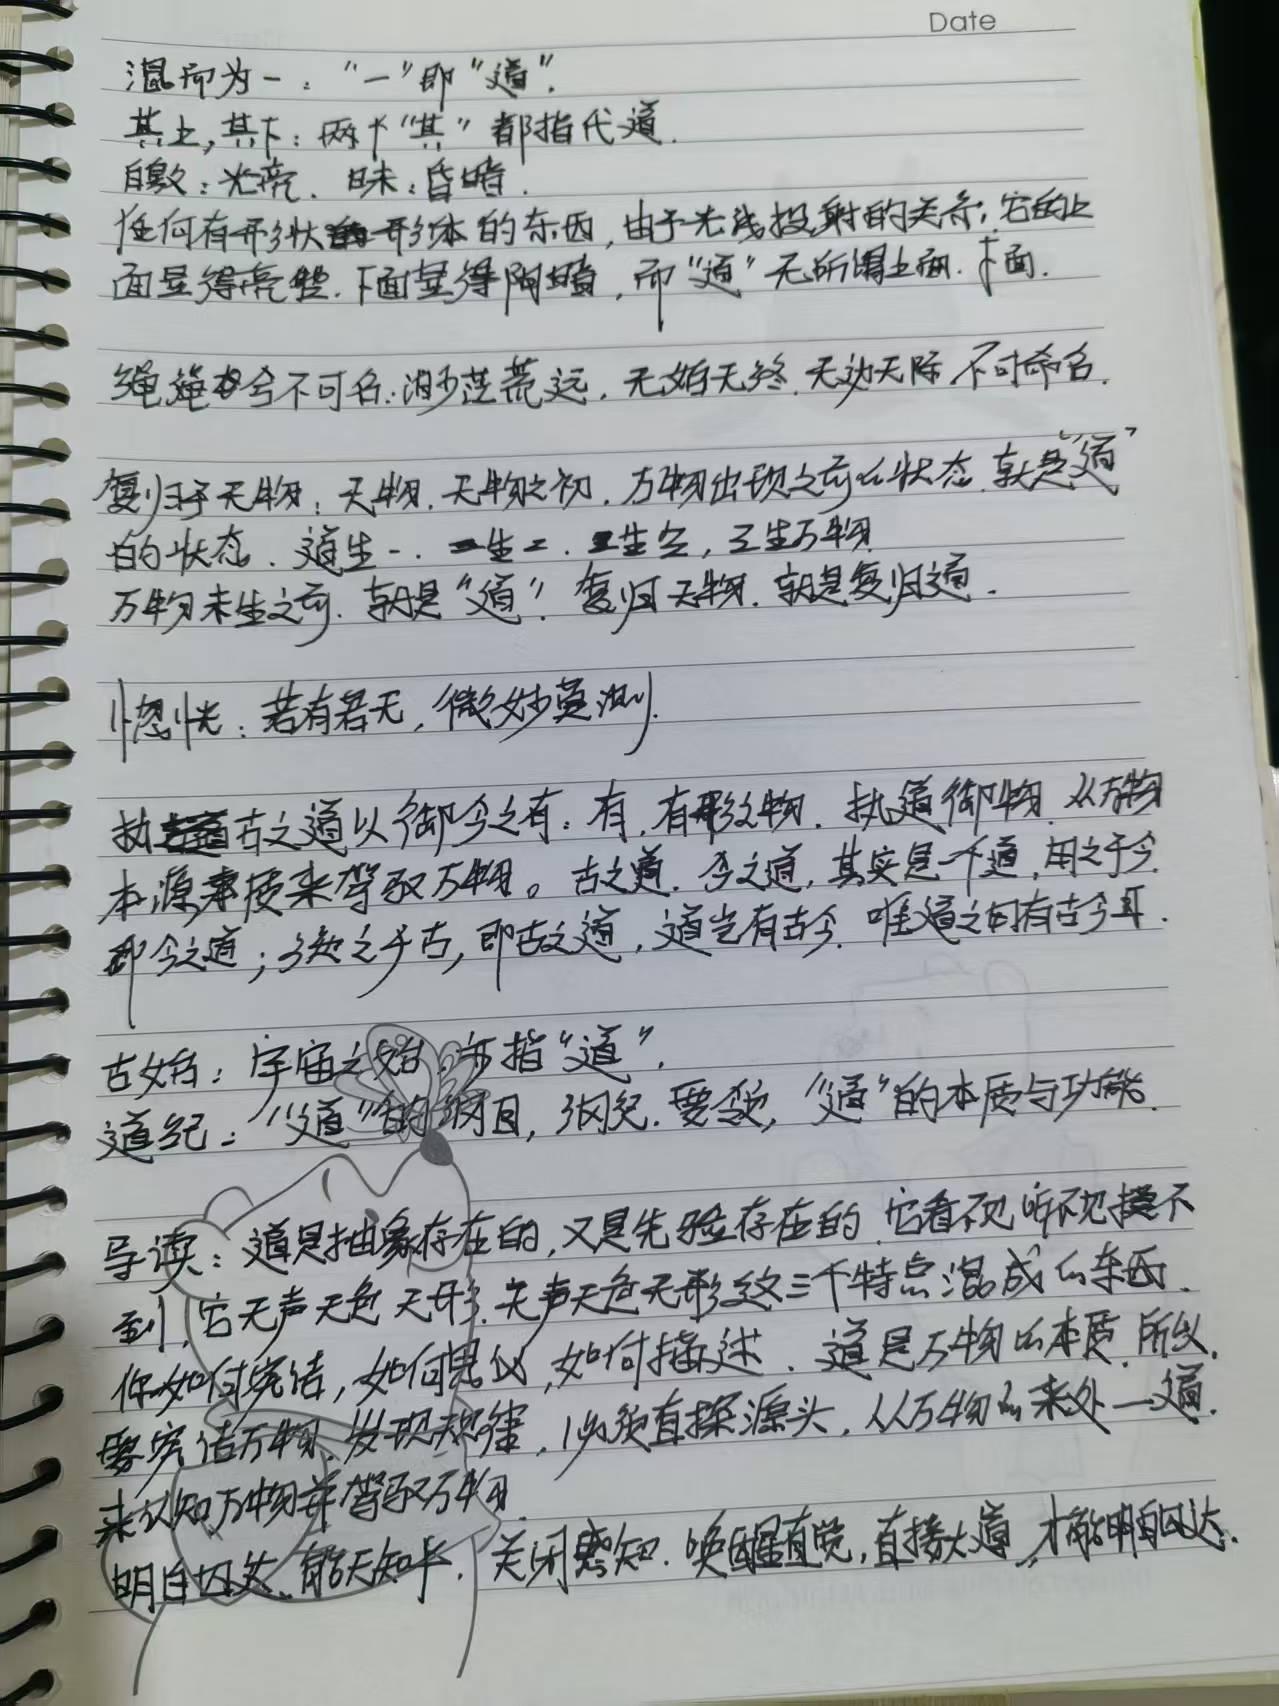 Date
混而为一：“一”即“道”.
其上,其下：两个“其”都指代道.
皦：光亮. 昧：昏暗.
任何有形状 形体的东西,由于光线投射的关系,它的上
面显得亮些.下面显得阴暗,而“道”无所谓上面.下面.
绳绳兮不可名:渺茫荒远,无始无终.无边无际.不可命名.
复归于无物：无物.无物之初.万物出现之前的状态.就是“道”
的状态.道生一.一生二.二生三,三生万物
万物未生之前.就是“道”.复归无物.就是复归道.
惚恍：若有若无,微妙莫测.
执古之道以御今之有：有,有形之物.执道御物.从万物
本源本质来驾驭万物。古之道.今之道,其实是一个道,用之于今
即今之道；施之于古,即古之道,道岂有古今.唯道之用有古今耳.
古始：宇宙之始.亦指“道”.
道纪：“道”的纲目,纲纪.要领,“道”的本质与功能.
导读：道是抽象存在的,又是先验存在的.它看不见听不见摸不
到,它无声无色无形.无声无色无形这三个特点混成的东西.
你如何究诘,如何思议,如何描述.道是万物的本质.所以.
要究诘万物.发现规律,必须直探源头,从万物的来处—道.
来认知万物并驾驭万物.
明白四达.能无知乎.关闭感知.唤醒直觉,直接大道,才能明白四达.